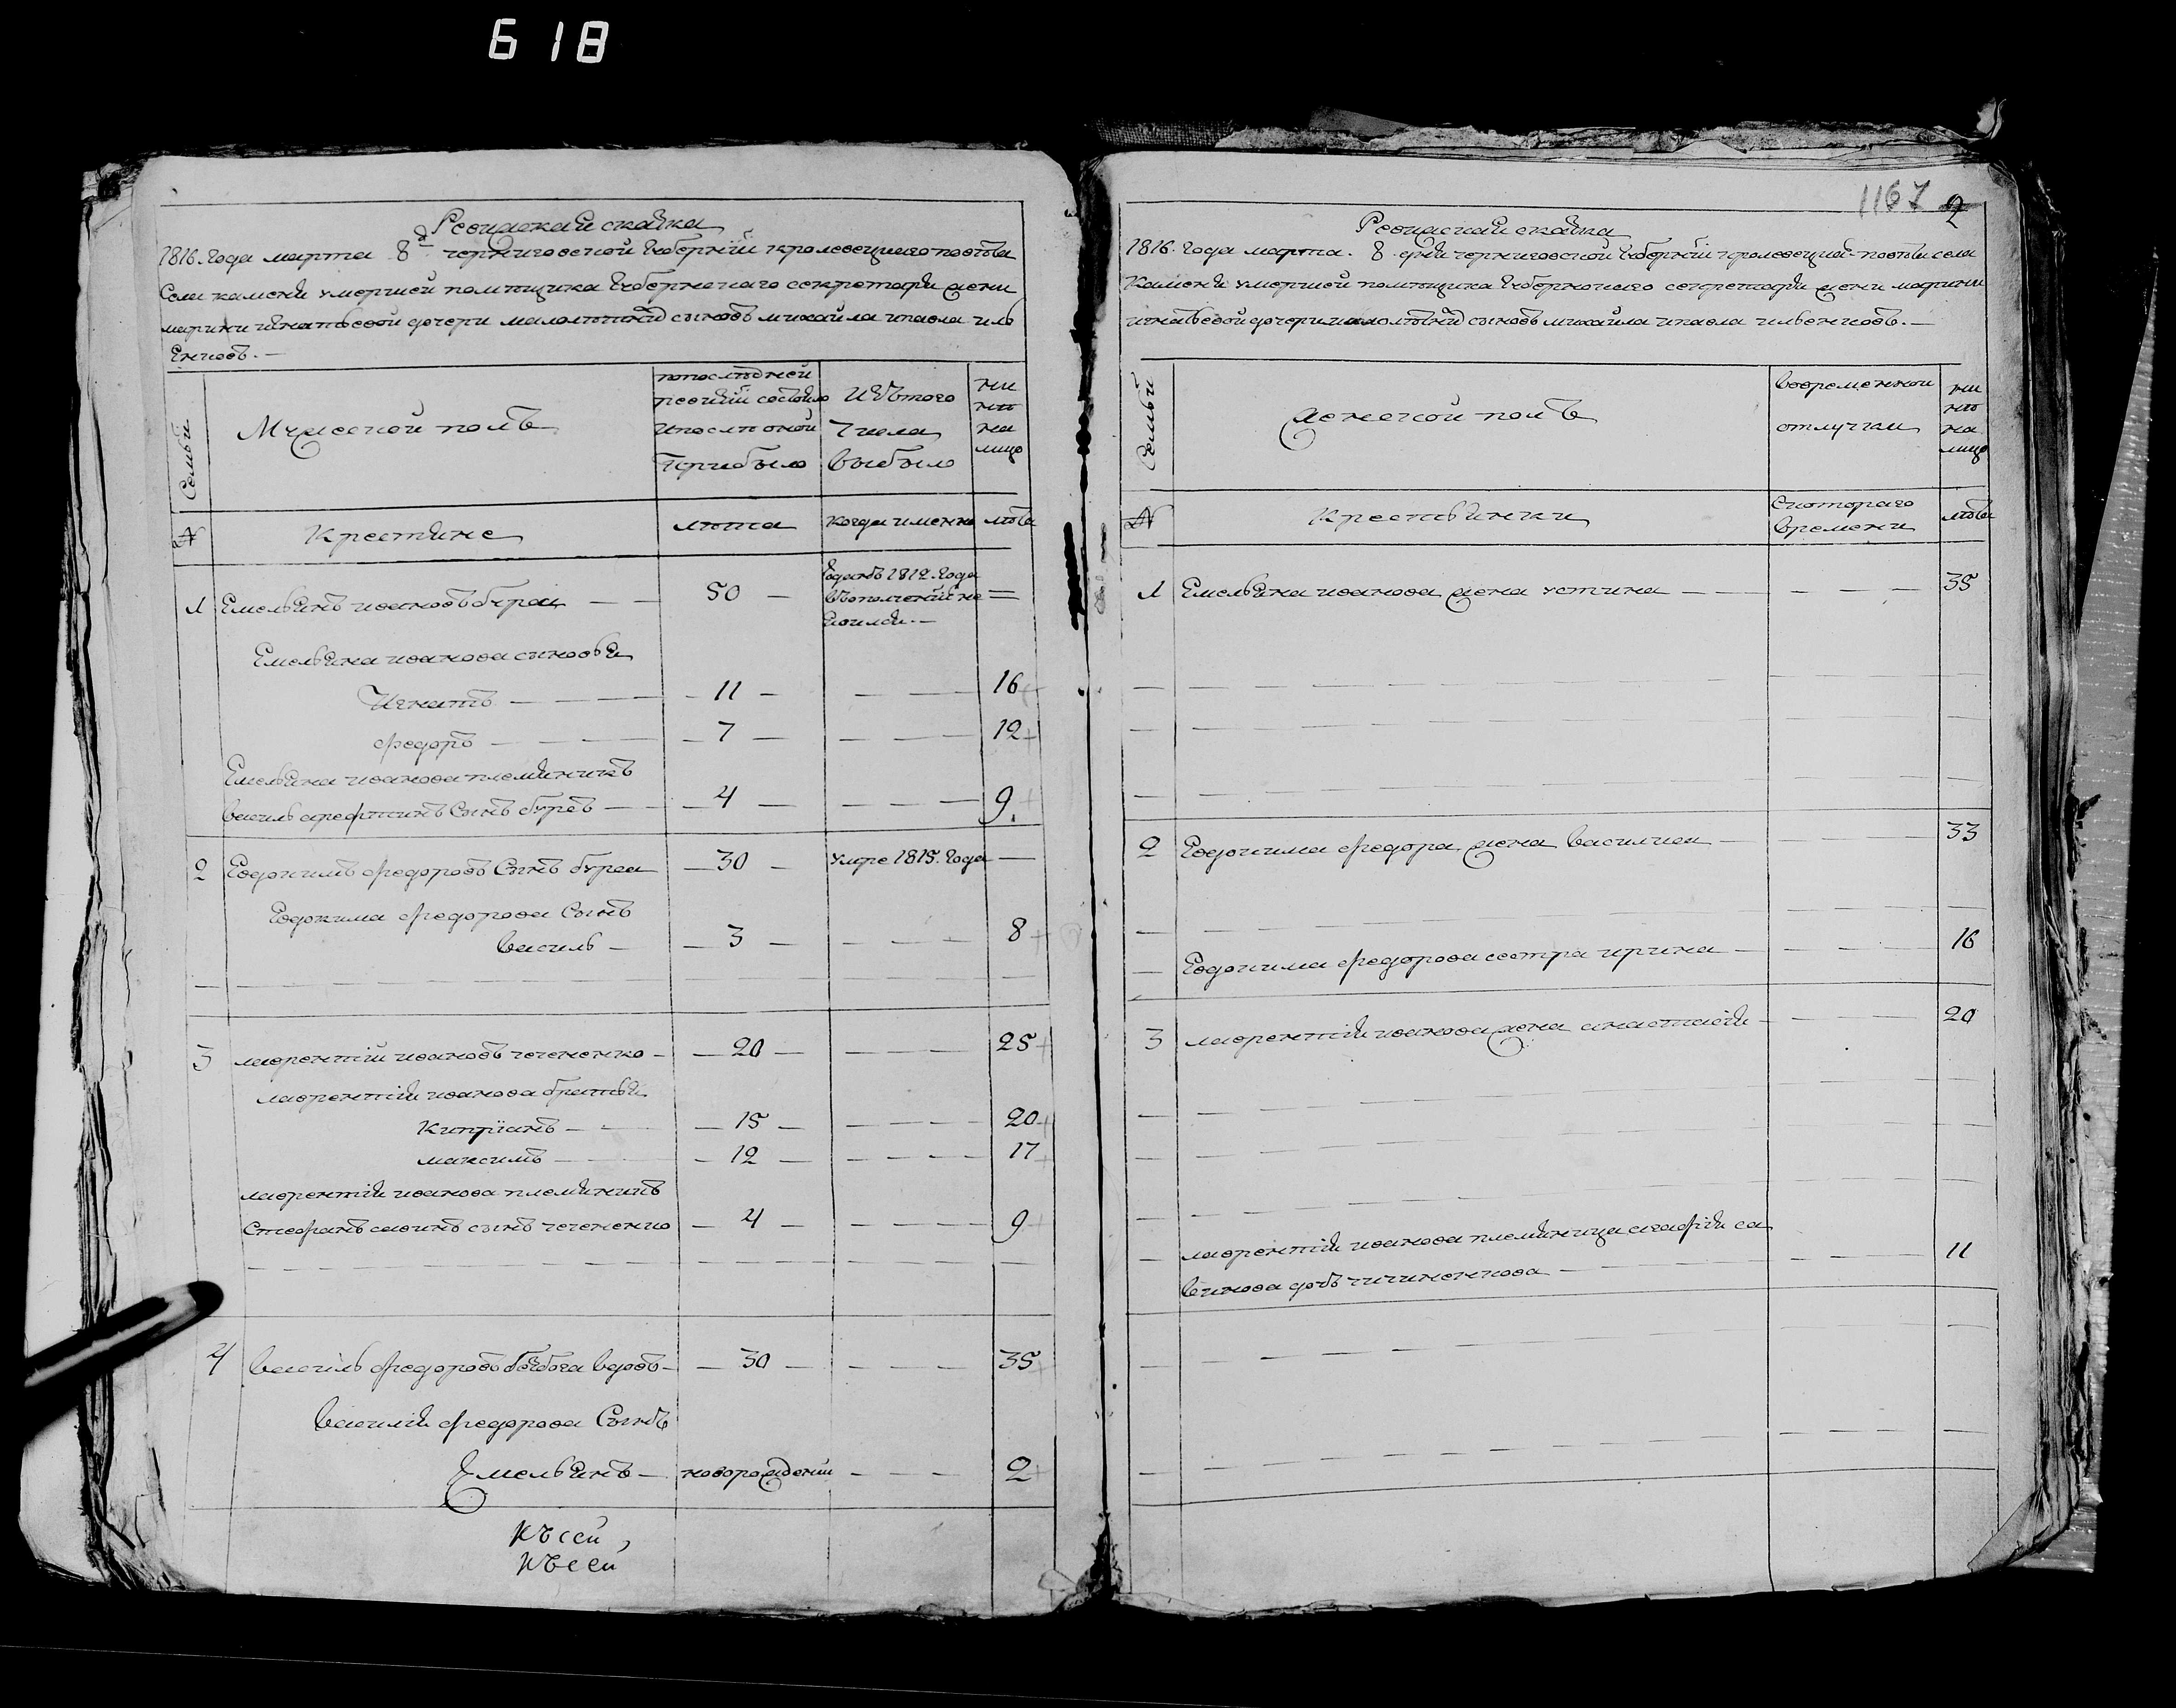 618
Ревизская сказка
1816. Года марта 8 д черниговской Губернїи кролевецкаго повѣта
Села каменя умершей помѣщика Губернскаго секретаря жены
марины игнатьевой дочери малолѣтнїй сыновъ михайла и павла иль
Енковъ. —
Семьи
Мужеской полъ
попослѣдней
ревизїи состояло
и послѣ оной
прибыло
изъ того
числа
выбыло
ны
нѣ
на
лицо
№
Крестяне
лѣта
когда именно
лѣта
1 Емельянъ ивановъ бурец — — 50 —
Зданъ 1812. Года
въ ополченїи не
явился. —
Емельяна иванова сыновья
Игнатъ — 11 — 16
федоръ — 7 — 12
Емельяна иванова племянникъ
василь Сынъ бурѣ — 4 — 9.
2 Евдокимъ федоровъ Сынъ бурец — 30 — умре 1815. Года —
Евдокима федорова Сынъ
василь — 3 — 8
3 лаврентїй ивановъ чечененко — 20 — 25
лаврентїя иванова братья
Кипріянъ — 15 — 20
максимъ — 12 — 17
лаврентїя иванова племянникъ
Стефанъ савинъ сынъ чечененко — 4 — 9
4 василь федоровъ вдовъ — 30 — 35
василїя федорова Сынъ
Емельянъ — новорожденны — 2
Къ сей
Къ сей
1167 2
Ревизская сказка
1816. Года марта. 8 дня черниговской Губернїи кролевецка- повѣта села
Каменя умершей помѣщика Губернскаго секретаря жены марины
игнатьевой дочери малолѣтнїй сыновъ михайла и павла ильенковъ. —
Семьи
женской полъ
во временной
отлучки
ны
нѣ
на
лицо
№
Крестьянки
Скотораго
времени
лѣта
1 Емельяна иванова жена устина — 35
2 Евдокима федора жена василиса — 33
Евдокима федорова сестра ирина — 16
3 лаврентїя иванова жена анастасїя — 20
лаврентїя иванова племянница агафїя са
винова дочь чичиненкова — 11